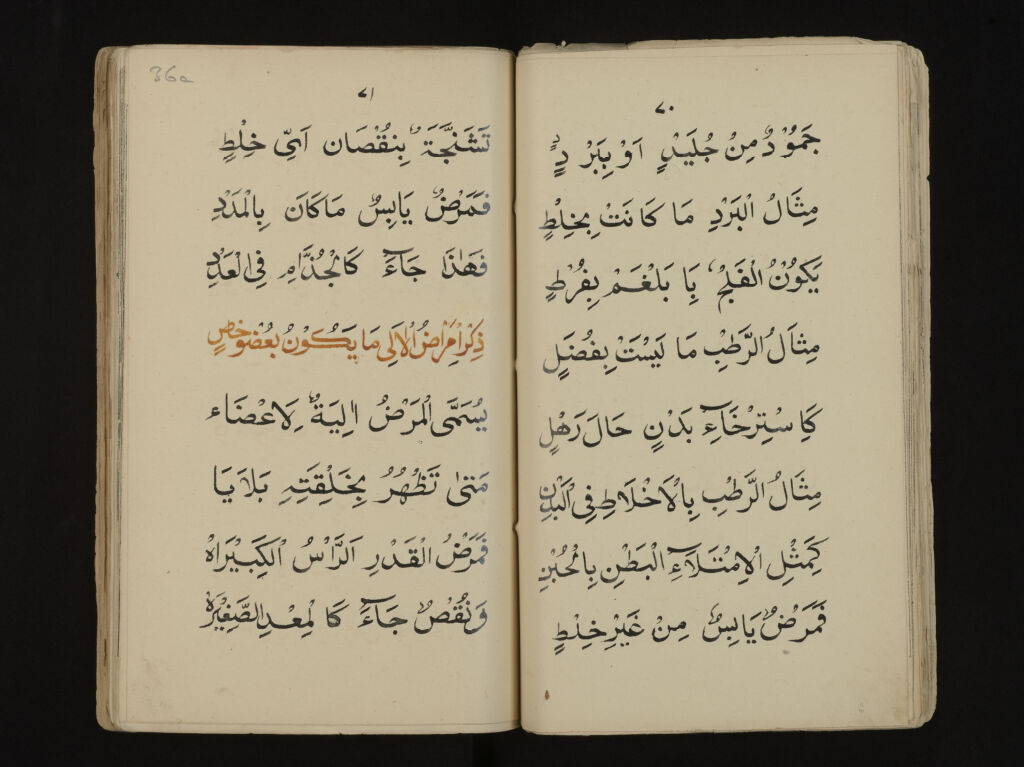 ٧٠
جَمُوْدٌ مِنْ جُلَيْدٍ اَوْ بِبَرْدٍ
مِثَالُ الْبَرْدِ مَا كَانَتْ بِخِلْطٍ
يَكُوْنُ الْفَلْجُ بَا بَلْغَمْ بِفُرْطٍ
مِثَالُ الرَّطْبِ مَا لَيْسَتْ بِفُضَلٍ
كَاِسْتِرْخَآءِ بَدْنٍ حَالَ رَهْلٍ
مِثَالُ الرَّطْبِ بِالْاَخْلَاطِ فِى الْبَدَنِ
كَمِثْلِ الْاِمْتَلَآءِ الْبَطْنِ بِالْحُبْنِ
فَمَرَضٌ يَابِسٌ مِنْ غَيْرِ خِلْطٍ
36a
٧١
تَشَنَّجَةٌ بِنُقْصَان اَيِّ خِلْطٍ
فَمَرَضٌ يَابِسٌ مَا كَانَ بِالْمَدَدِ
فَهٰذَا جَآءَ كَالْجُذَّامِ فِى الْعَدَدِ
ذِكْرُ اَمْرَاضُ الْاٰلَى مَا يَكُوْنُ بعُضْو خَصٍ
يُسَمَّى الْمَرَضُ اٰلِيَةٌ لِاَعْضَاء
مَتٰى تَظْهُرُ بِخَلْقِتَهِ بَلَايَا
فَمَرَضُ الْقَدْرِ اَلرَّاْسُ الْكَبِيْرَاهْ
وَنُقْصٌ جَآءَ كَا لْمِعْدِ الصَّغِيْرَهْ